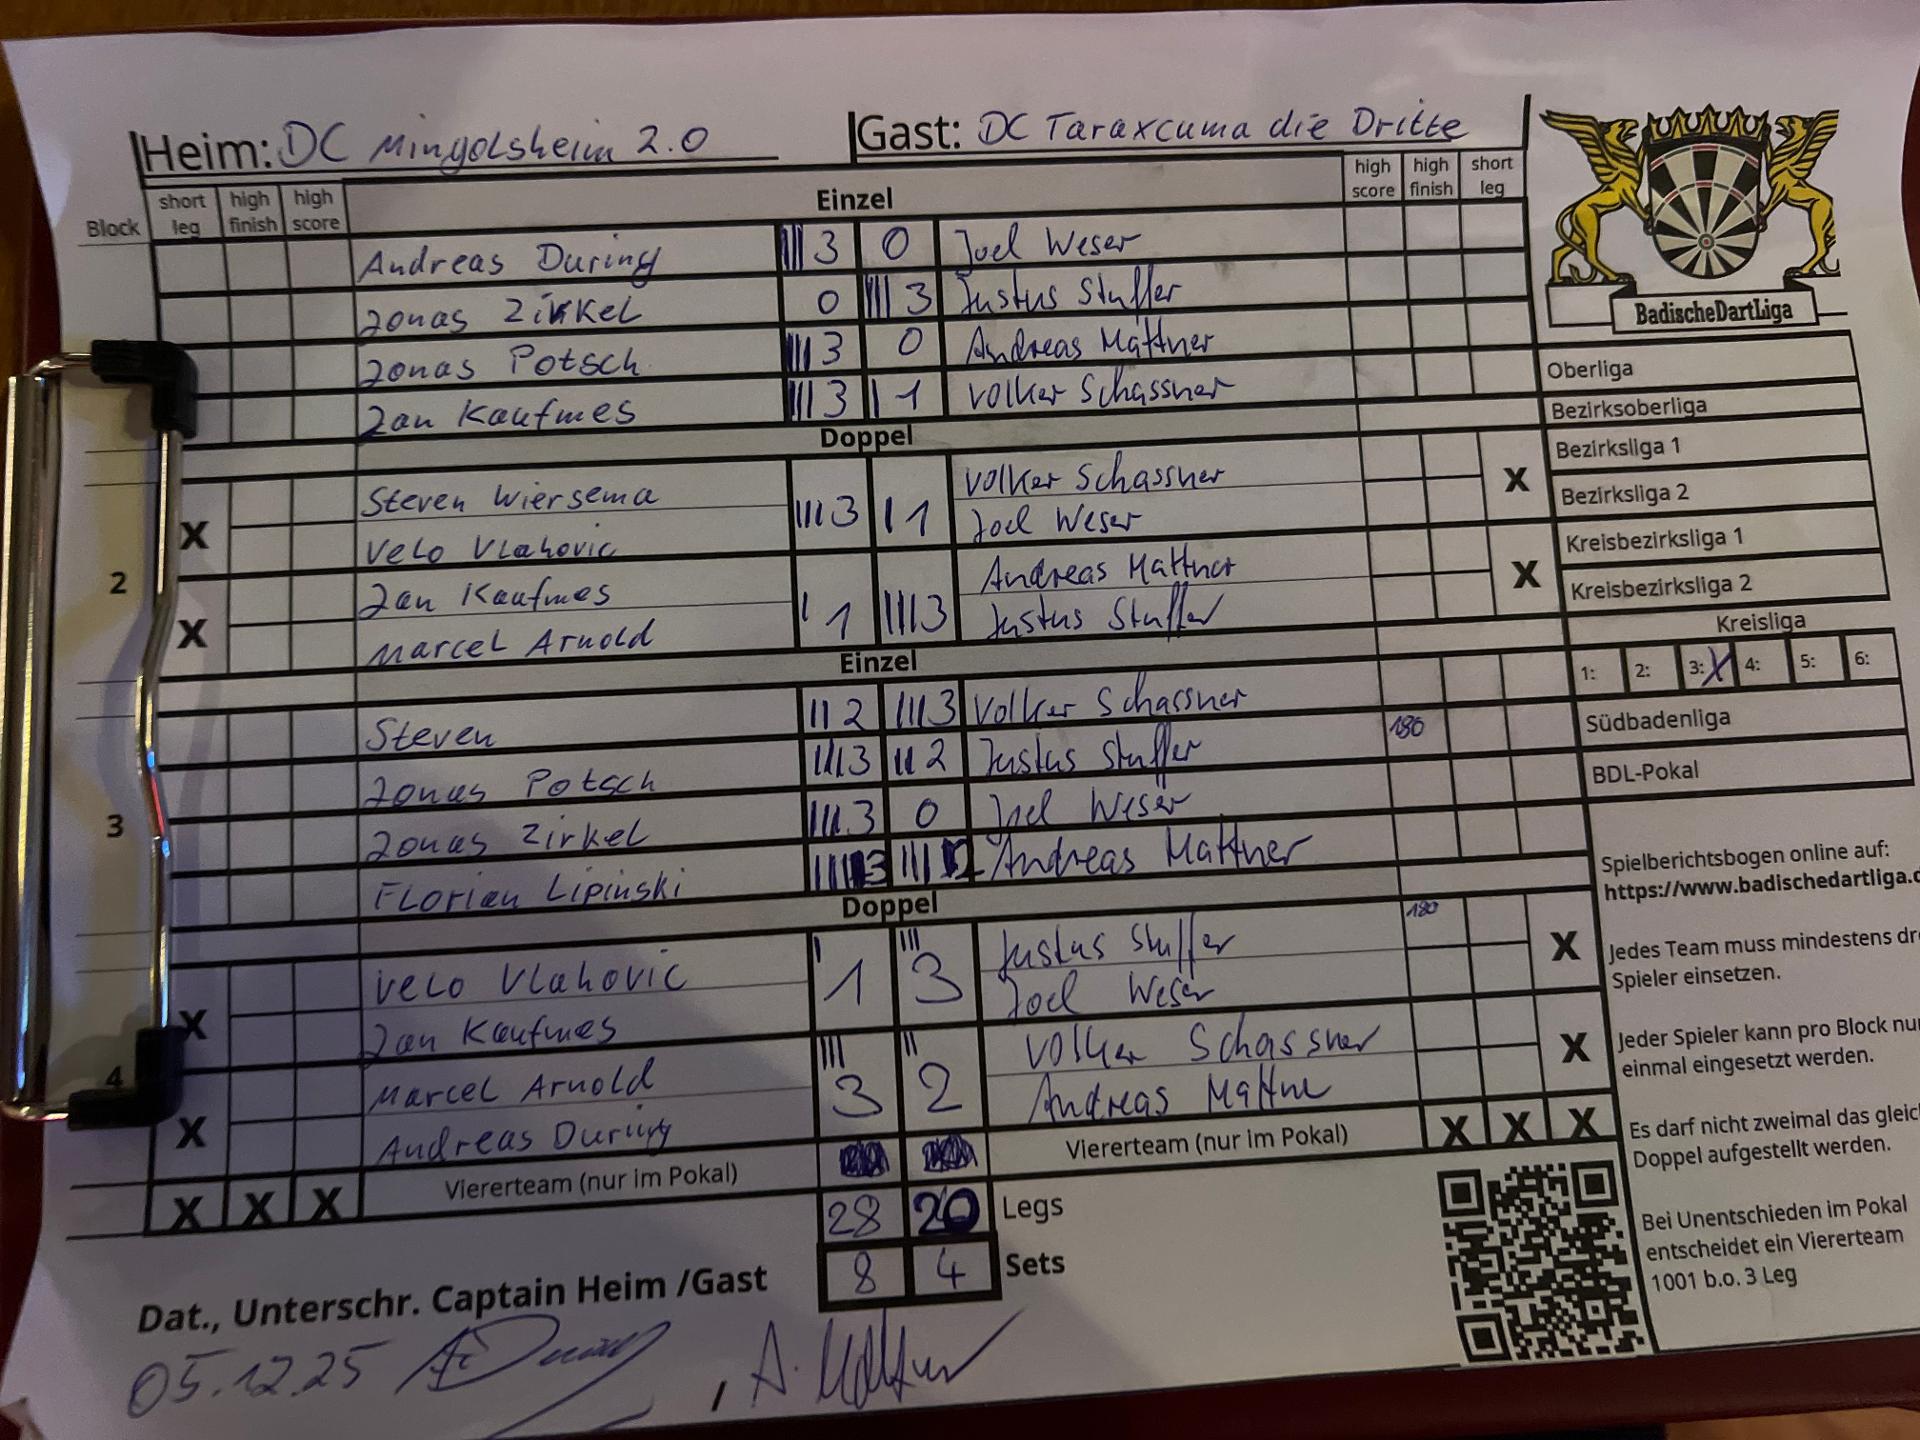 Heim: DC Mingolsheim 2.0 Gast: DC Taraxcuma die Dritte
Block short leg high finish high score Einzel high score high finish short leg
Andreas During 3 0 Joel Weser
Jonas Zirkel 0 3 Justus Stuffer
Jonas Potsch 3 0 Andreas Mattner
Jan Kaufmes 3 1 Volker Schassner
BadischeDartLiga
Oberliga
Bezirksoberliga
Bezirksliga 1
Bezirksliga 2
Kreisbezirksliga 1
Kreisbezirksliga 2
Kreisliga
1: 2: 3: X 4: 5: 6:
Südbadenliga
BDL-Pokal
Doppel
2
X Steven Wiersema 3 1 Volker Schassner X
Velo Vlahovic Joel Weser
X Jan Kaufmes 1 3 Andreas Mattner X
Marcel Arnold Justus Stuffer
Einzel
3
Steven 2 3 Volker Schassner
Jonas Potsch 3 2 Justus Stuffer 180
Jonas Zirkel 3 0 Joel Weser
Florian Lipinski 3 2 Andreas Mattner
Doppel
4
X Velo Vlahovic 1 3 Justus Stuffer 180 X
Jan Kaufmes Joel Weser
X Marcel Arnold 3 2 Volker Schassner X
Andreas During Andreas Mattne
X X X Viererteam (nur im Pokal) Viererteam (nur im Pokal) X X X
28 20 Legs
8 4 Sets
Dat., Unterschr. Captain Heim /Gast
05.12.25 , A. Mattner
Spielberichtsbogen online auf:
https://www.badischedartliga.
Jedes Team muss mindestens
Spieler einsetzen.
Jeder Spieler kann pro Block
einmal eingesetzt werden.
Es darf nicht zweimal das
Doppel aufgestellt werden.
Bei Unentschieden im Pokal
entscheidet ein Viererteam
1001 b.o. 3 Leg